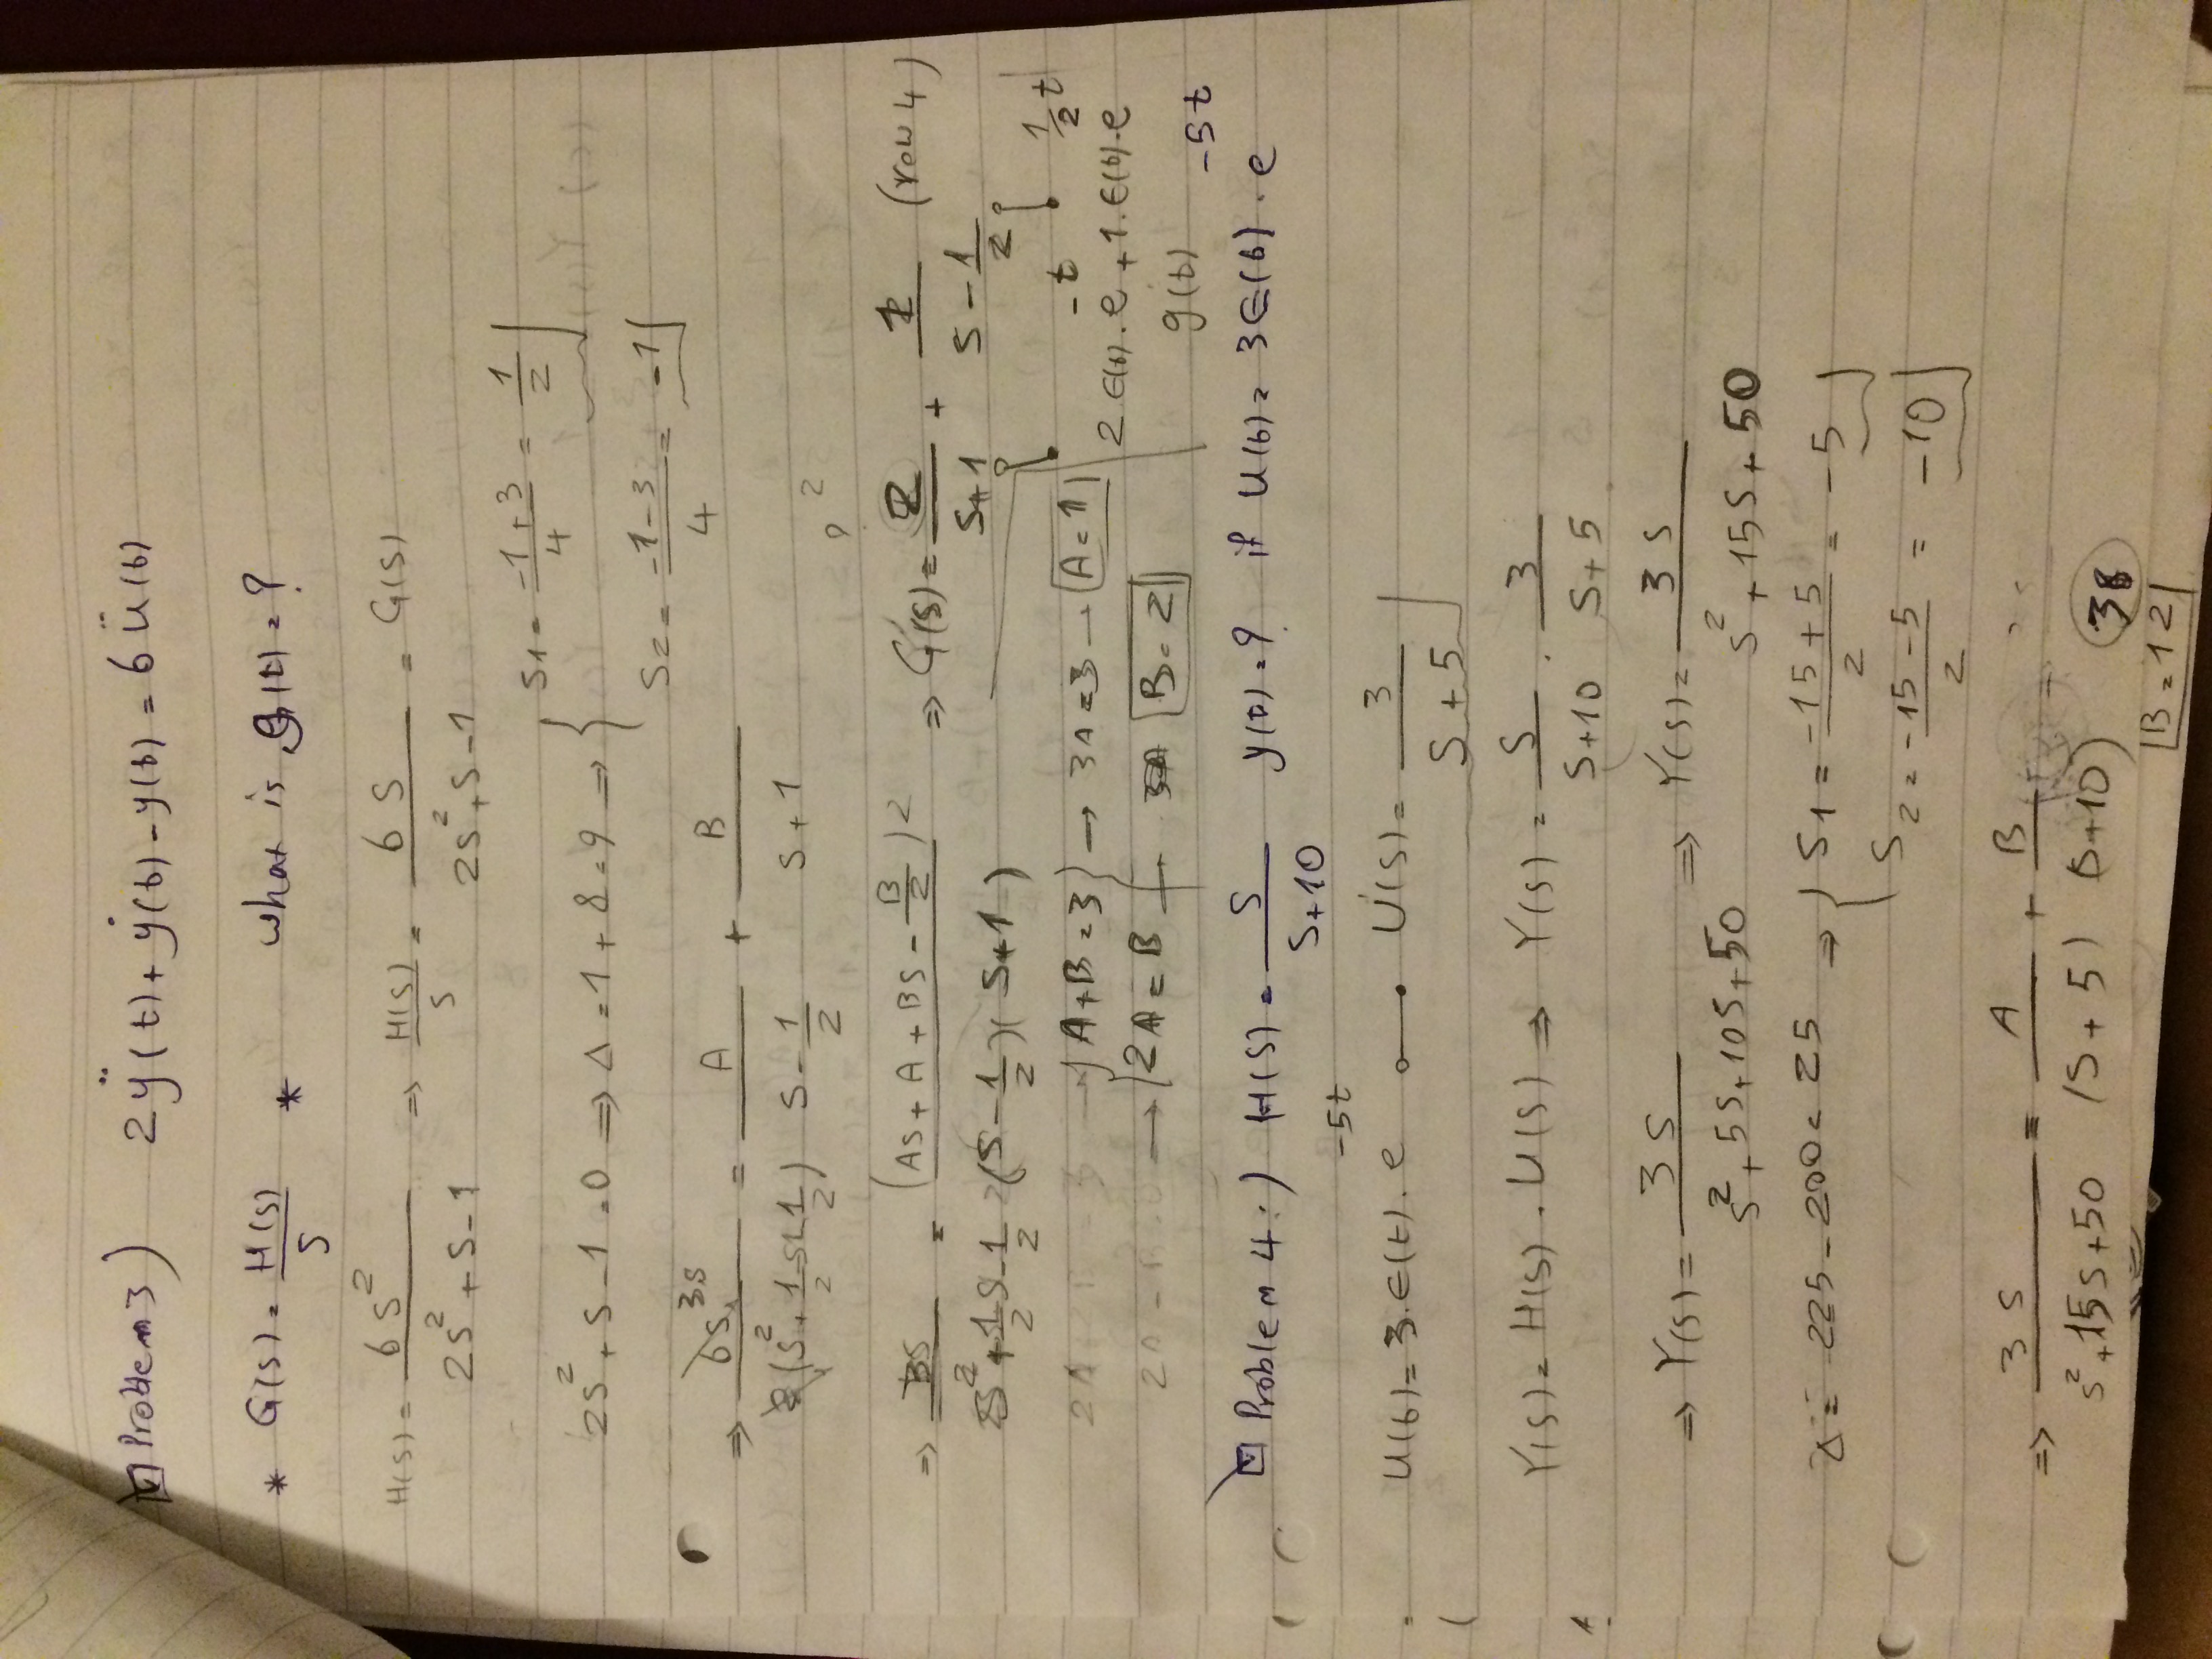 Problem 3) 2ÿ(t) + ẏ(t) - y(t) = 6ü(t)
* G(s) = H(s)/s * what is g(t) = ?
H(s) = 6s²/(2s² + s - 1) ⇒ H(s)/s = 6s/(2s² + s - 1) = G(s)
2s² + s - 1 = 0 ⇒ Δ = 1 + 8 = 9 ⇒ { s1 = (-1 + 3)/4 = 1/2
s2 = (-1 - 3)/4 = -1
⇒ 6s 3s / 2(s² + 1/2 s - 1/2) = A/(s - 1/2) + B/(s + 1)
⇒ 3s/(s² + 1/2 s - 1/2) = (As + A + Bs - B/2)2 / 2(s - 1/2)(s + 1) ⇒ G(s) = 2/(s + 1) + 1/(s - 1/2) (row 4)
→ { A + B = 3 } → 3A = 3 → A = 1
→ { 2A = B → B = 2
2 ϵ(t) . e^-t + 1 . ϵ(t) . e^1/2 t
g(t)
Problem 4:) H(s) = s/(s + 10) y(t) = ? if u(t) = 3 ϵ(t) . e^-5t
u(t) = 3 . ϵ(t) . e^-5t ○—● U(s) = 3/(s + 5)
Y(s) = H(s) . U(s) ⇒ Y(s) = s/(s + 10) . 3/(s + 5)
⇒ Y(s) = 3s/(s² + 5s + 10s + 50) ⇒ Y(s) = 3s/(s² + 15s + 50)
Δ = 225 - 200 = 25 ⇒ { s1 = (-15 + 5)/2 = -5
s2 = (-15 - 5)/2 = -10
⇒ 3s/(s² + 15s + 50) = A/(s + 5) + B/(s + 10)
38
B = 12